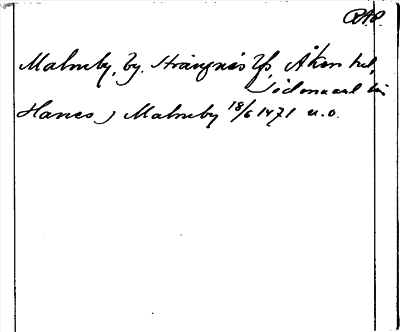 RAP.
Malmby, by. Strängnäs Ys, Åkers hd,
Södermanl. län
Hanes j Malmby 18/6 1471 u.o.